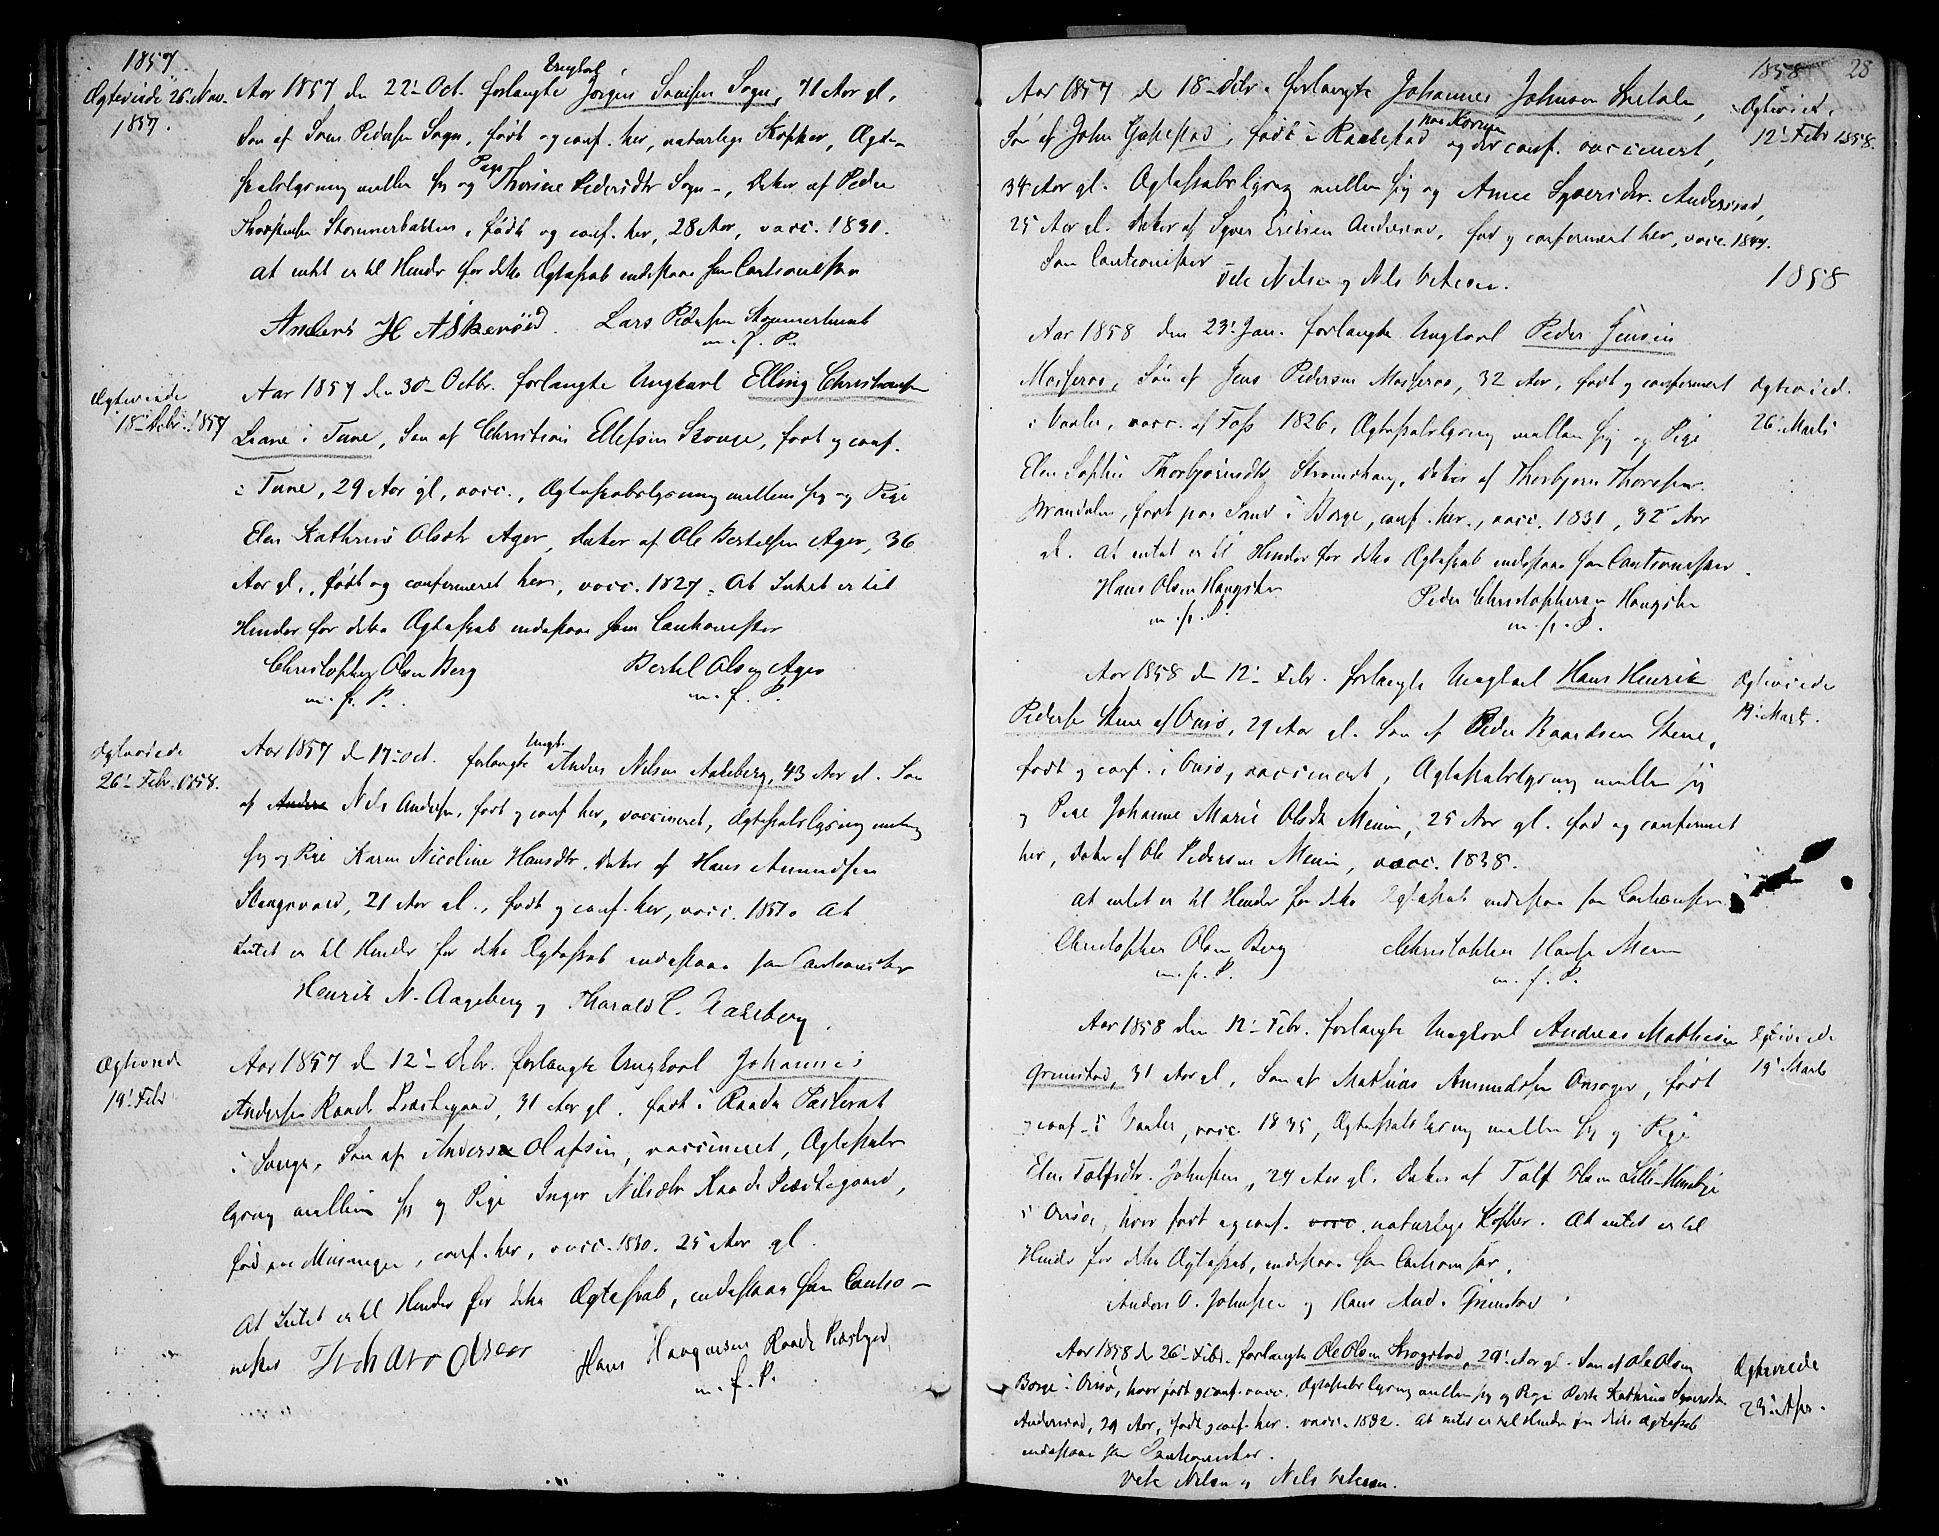 1857
Ægteviede 26. Nov.
1857.
Ungkal
Aar 1857 den 22. Oct. forlangte Jörgen Sannesen Sogn, 71 Aar gl,
Sön af Pedersen Sogn, födt og conf. her, naturlige Kopper, Ægte-
skabslysning mellem sig og Pige Thorine Pedersdtr Sogn, Datter af Peder
födt og conf. her, 28 Aar, vacc. 1831.
at intet er til Hinder for dette Ægteskab indestaae som Cautionister
Anders H Askeröed. Lars Pedersen
m. f. P.
Ægteviede
18. Debr. 1857
Aar 1857 den 30. Octbr. forlangte Ungkarl Elling Christiansen
i Tune, Sön af Christian Ellefsen födt og conf.
i Tune, 29 Aar gl, vacc., Ægteskabslysning mellem sig og Pige
Elen Kathrine Olsdtr Ager, Datter af Ole Bertelsen Ager, 36
Aar gl., födt og confirmeret her, vacc. 1827. At Intet er til
Hinder for dette Ægteskab indestaae som Cautionister
Christopher Olsen Berg Bertel Olsen Ager
m. f. P. m. f. P.
Ægteviede
26. Febr. 1858.
Ungk.
Aar 1857 d 17. Oct. forlangte Andres Nilsen Aaleberg, 43 Aar gl. Sön
af Nils Andersen, födt og conf her, vaccineret, Ægteskabslysning mellem
sig og Pige Karen Nicoline Hansdtr, Datter af Hans Amundsen
21 Aar gl., födt og conf. her, vacc. At
Intet er til Hinder for dette Ægteskab indestaae som Cautionister
Henrik N. Aageberg og Tharald C. Aaleberg.
Ægteviede
19. Febr
Aar 1857 d 12. Debr. forlangte Ungkarl Johannes
Andersen Raade Præstegaard, 31 Aar gl. födt i Raade Pastorat
i Sverge, Sön af Anders Olafsen, vaccineret, Ægteskabs
lysning mellem sig og Pige Inger Nilsdtr Raade Præstegaard,
föd conf. her, vacc. 1830. 25 Aar gl.
At Intet er til Hinder for dette Ægteskab, indestaae som Cautio-
nister Olsen Hans Haagensen Raade Præstgrd
m. f. P.
1858 28
Aar 1857 d 18. Debr. forlangte Johannes Johnsen
Sön af John födt i Rakkestad og der conf. vaccineret,
34 Aar gl. Ægteskabslysning mellem sig og Anne Syversdtr. Andersrød,
25 Aar gl. Datter af Syver Eriksen födt og confirmeret her, vacc. 1847.
Som Cautionister
Nilsen og Nils
Ægteviet
12. Febr 1858.
1858
Aar 1858 den 23. Jan. forlangte Ungkarl Peder Jensen
Mosseros, Sön af Jens Pedersen Mosseros, 32 Aar, födt og confirmeret
i Vaaler, vacc. af Foss 1826, Ægteskabslysning mellem sig og Pige
Elen Sophie Thorbjörnsdtr Datter af Thorbjörn
födt paa Sand i Borge, conf. her, vacc. 1831, 32 Aar
gl. At intet er til Hinder for dette Ægteskab indestaae som Cautionister
Hans Olsen Haugsten Peder Christophersen Haugsten
m. f. P. m. f. P.
Ægteviede
26. Marts
Aar 1858 den 12. Febr. forlangte Ungkarl Hans Henrik
Pedersen Stene af Onsö, 29 Aar gl. Sön af Peder Stene,
födt og conf. i Onsö, vaccineret, Ægteskabslysning mellem sig
og Pige Johanne Marie Olsdtr Menin, 25 Aar gl. född og confirmet
her, Datter af Ole Pedersen Menin, vacc. 1838.
At intet er til Hinder for dette Ægteskab indestaae som Cautionister
Christopher Olsen Berg Christopher Hansen Menin
m. f. P. m. f. P.
Ægteviede
19. Marts.
Aar 1858 den 12. Febr. forlangte Ungkarl Andreas Mathisen
Grimstad, 31 Aar gl, Sön af Mathias Amundsen Onsager, födt
og conf. i Vaaler, vacc. 1835, Ægteskabslysning mellem sig og Pige
Elen Tolfsdtr. 29 Aar gl. Datter af Tolf Olsen
i Onsö, hvor födt og conf. vacc. naturlige Kopper. At intet er til
Hinder for dette Ægteskab, indestaae som Cautionister.
Anders O. og Hans And. Grimstad
Ægteviede
19. Marts
Aar 1858 d 26. Febr. forlangte Ole Olsen 29 Aar gl. Sön af Ole Olsen
Borge i Onsö, hvor födt og conf. vacc. Ægteskabslysning mellem sig og Pige Kathrine Syversdtr
Andersrød, 29 Aar, födt og conf. her. vacc. 1832. At intet er til Hinder for dette Ægteskab
indestaae som Cautionister.
Nilsen og Nils
Ægteviede
23. Apr.